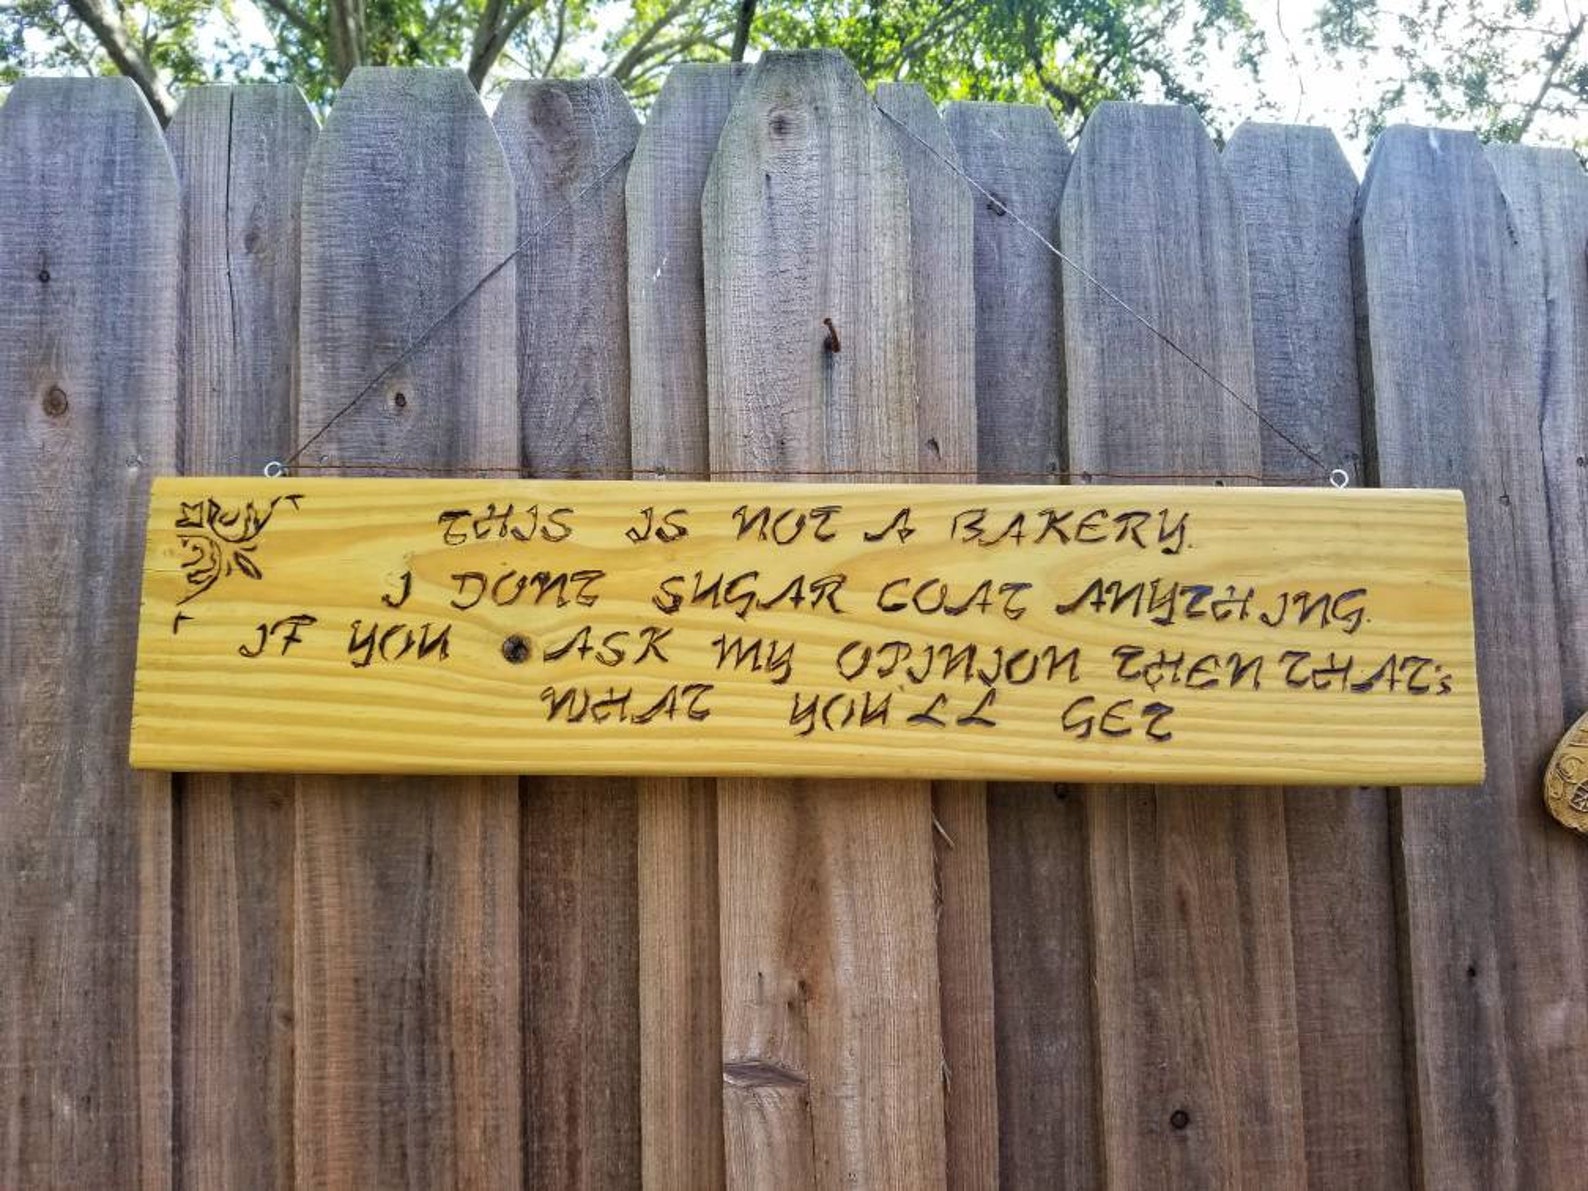 THIS IS NOT A BAKERY.
I DONT SUGAR COAT ANYTHING.
IF YOU ASK MY OPINION THEN THAT's
WHAT YOU'LL GET